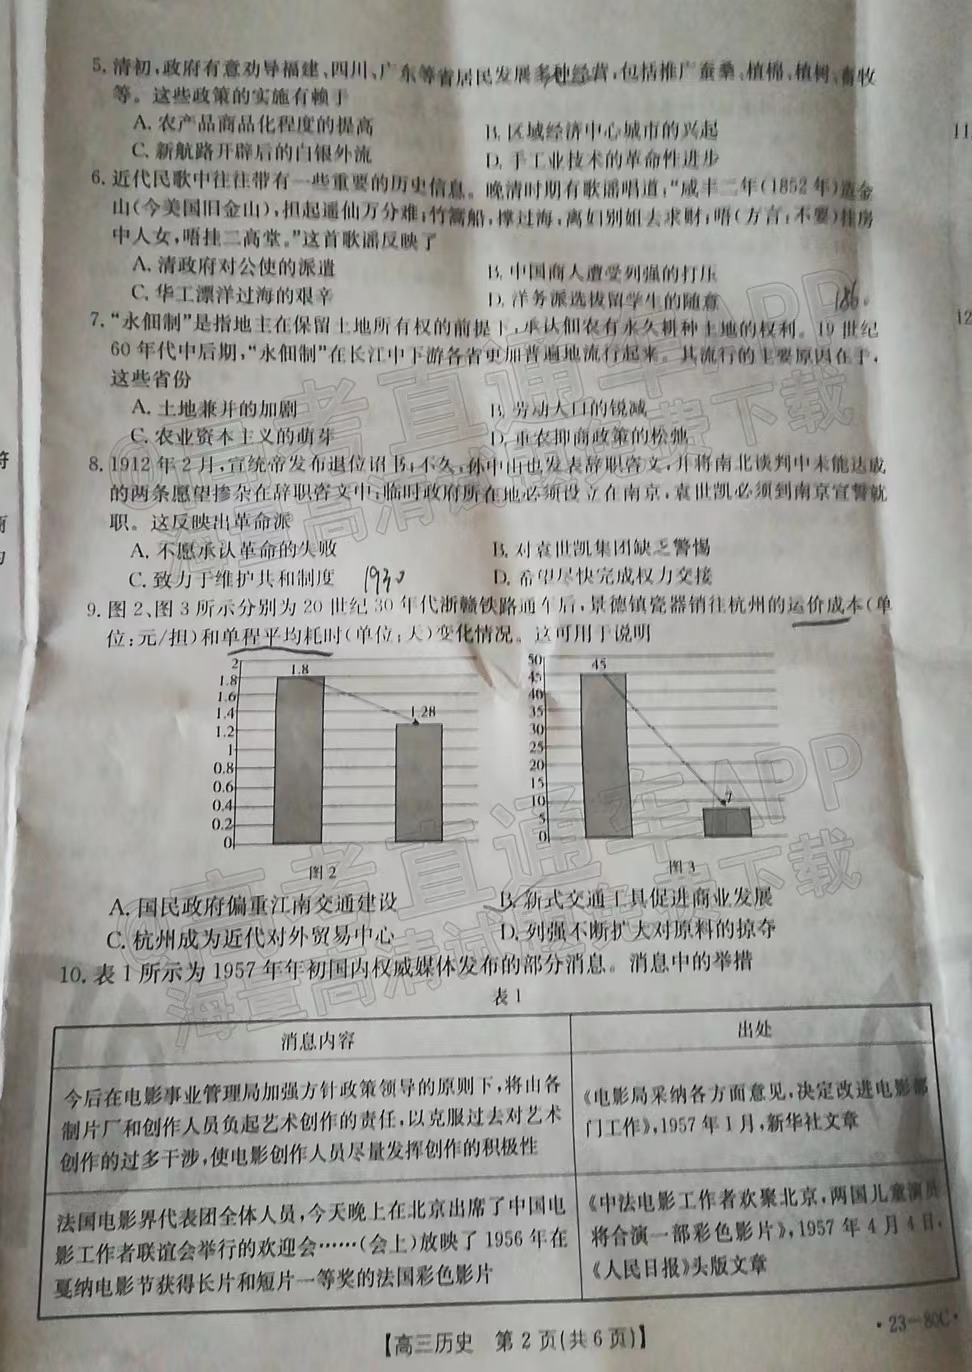 5. 清初,政府有意劝导福建、四川、广东等省居民发展多种经营,包括推广蚕桑、植棉、植树、畜牧
等。这些政策的实施有赖于
A. 农产品商品化程度的提高
B. 区域经济中心城市的兴起
11
C. 新航路开辟后的白银外流
D. 手工业技术的革命性进步
6. 近代民歌中往往带有一些重要的历史信息。晚清时期有歌谣唱道:“咸丰二年(1852年)造金
山(今美国旧金山),担起遥仙万分难;竹篙船,撑过海,离妇别姐去求财;唔(方言:不要)挂房
中人女,唔挂二高堂。”这首歌谣反映了
A. 清政府对公使的派遣
B. 中国商人遭受列强的打压
C. 华工漂洋过海的艰辛
D. 洋务派选拔留学生的随意
12
7. “永佃制”是指地主在保留土地所有权的前提下,承认佃农有永久耕种土地的权利。19世纪
60年代中后期,“永佃制”在长江中下游各省更加普遍地流行起来。其流行的主要原因在于,
这些省份
A. 土地兼并的加剧
B. 劳动人口的锐减
C. 农业资本主义的萌芽
D. 重农抑商政策的松弛
8. 1912年2月,宣统帝发布退位诏书;不久,孙中山也发表辞职咨文,并将南北谈判中未能达成
的两条愿望掺杂在辞职咨文中:临时政府所在地必须设立在南京,袁世凯必须到南京宣誓就
职。这反映出革命派
A. 不愿承认革命的失败
B. 对袁世凯集团缺乏警惕
C. 致力于维护共和制度
1930
D. 希望尽快完成权力交接
9. 图2、图3所示分别为20世纪30年代浙赣铁路通车后,景德镇瓷器销往杭州的运价成本(单
位:元/担)和单程平均耗时(单位:天)变化情况。这可用于说明
2
1.8
1.6
1.4
1.2
1
0.8
0.6
0.4
0.2
0
1.8
1.28
图2
50
45
40
35
30
25
20
15
10
5
0
45
7
图3
A. 国民政府偏重江南交通建设
B. 新式交通工具促进商业发展
C. 杭州成为近代对外贸易中心
D. 列强不断扩大对原料的掠夺
10. 表1所示为1957年年初国内权威媒体发布的部分消息。消息中的举措
表1
消息内容
出处
今后在电影事业管理局加强方针政策领导的原则下,将由各
制片厂和创作人员负起艺术创作的责任,以克服过去对艺术
创作的过多干涉,使电影创作人员尽量发挥创作的积极性
《电影局采纳各方面意见,决定改进电影部
门工作》,1957年1月,新华社文章
法国电影界代表团全体人员,今天晚上在北京出席了中国电
影工作者联谊会举行的欢迎会……(会上)放映了1956年在
戛纳电影节获得长片和短片一等奖的法国彩色影片
《中法电影工作者欢聚北京,两国儿童演员
将合演一部彩色影片》,1957年4月4日,
《人民日报》头版文章
【高三历史 第2页(共6页)】
·23-80C·
@高考直通车APP
海量高清试题免费下载
@高考直通车APP
海量高清试题免费下载